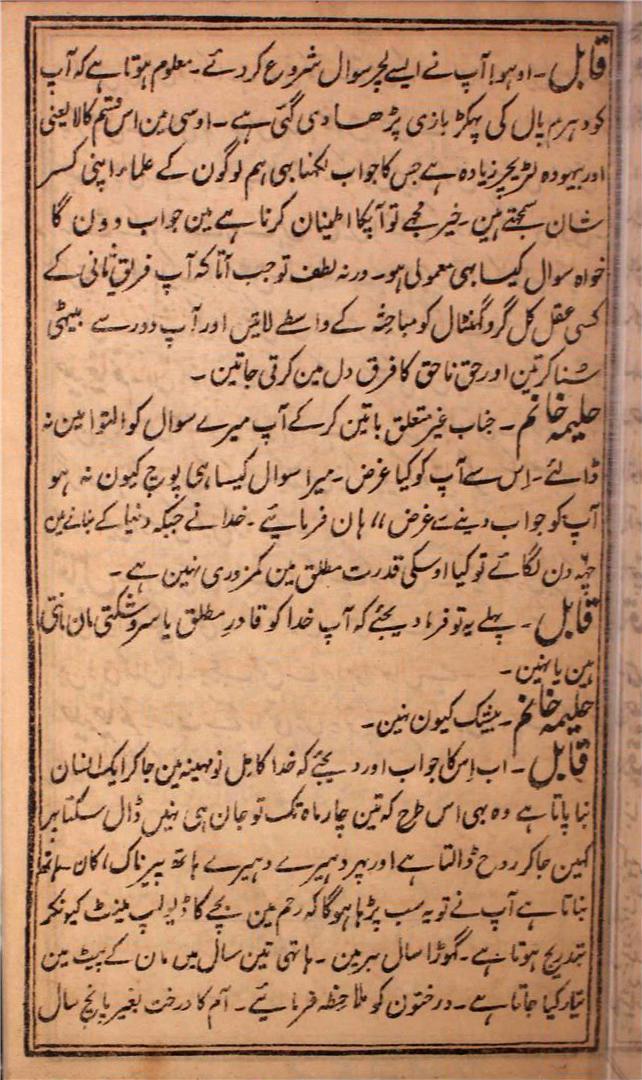 قابل۔ اوہو! آپ نے ایسے لچر سوال شروع کردئے۔ معلوم ہوتا ہے کہ آپ
کو دہرم پال کی پہکڑ بازی پڑھا دی گئی ہے۔ اوسی مین اس قسم کا لایعنی
اور بیہودہ لٹریچر زیادہ ہے جس کا جواب لکہنا بہی ہم لوگون کے علماء اپنی کسر
شان سمجہتے ہین۔ خیر مجہے تو آپکا اطمینان کرنا ہے مین جواب دون گا
خواہ سوال کیسا بہی معمولی ہو۔ ورنہ لطف تو جب آتا کہ آپ فریق ثانی کے
کسی عقل کل گرو گہنٹال کو مباحثہ کے واسطے لاتین اور آپ دور سے بیٹہی
سُنا کرتین اور حق ناحق کا فرق دل مین کرتی جاتین۔
حلیمہ خانم۔ جناب غیر متعلق باتین کرکے آپ میرے سوال کو التوا مین نہ
ڈالئے۔ اِس سے آپ کو کیا غرض۔ میرا سوال کیسا ہی پوچ کیون نہ ہو
آپ کو جواب دینے سے غرض،، ہان فرمائیے۔ خدا نے جبکہ دنیا کے بنانے مین
چہہ دن لگائے تو کیا اوسکی قدرت مطلق مین کمزوری نہین ہے۔
قابل۔ پہلے یہ تو فرما دیجئے کہ آپ خدا کو قادرِ مطلق یا سروشکتی مان مانتی
ہین یا نہین۔
حلیمہ خانم۔ بیشک کیون نہین۔
قابل۔ اب اِس کا جواب اور دیجئے کہ خدا کامل نو مہینہ مین جاکر ایک انسان
بنا پاتا ہے وہ بہی اس طرح کہ تین چار ماہ تک تو جان ہی نہیں ڈال سکتا پہر
کہین جاکر روح ڈالتا ہے اور پہر دہیرے دہیرے ہاتہ پیر ناک، کان۔
بناتا ہے آپ نے تو یہ سب پڑہا ہوگا کہ رحم مین بچے کا ڈیولپ مینٹ کیونکر
بتدریج ہوتا ہے۔ گہوڑا سال بہر مین۔ ہاتہی تین سال میں مان کے پیٹ مین
تیار کیا جاتا ہے۔ درختون کو ملاحظہ فرمائیے۔ آم کا درخت بغیر پانچ سال